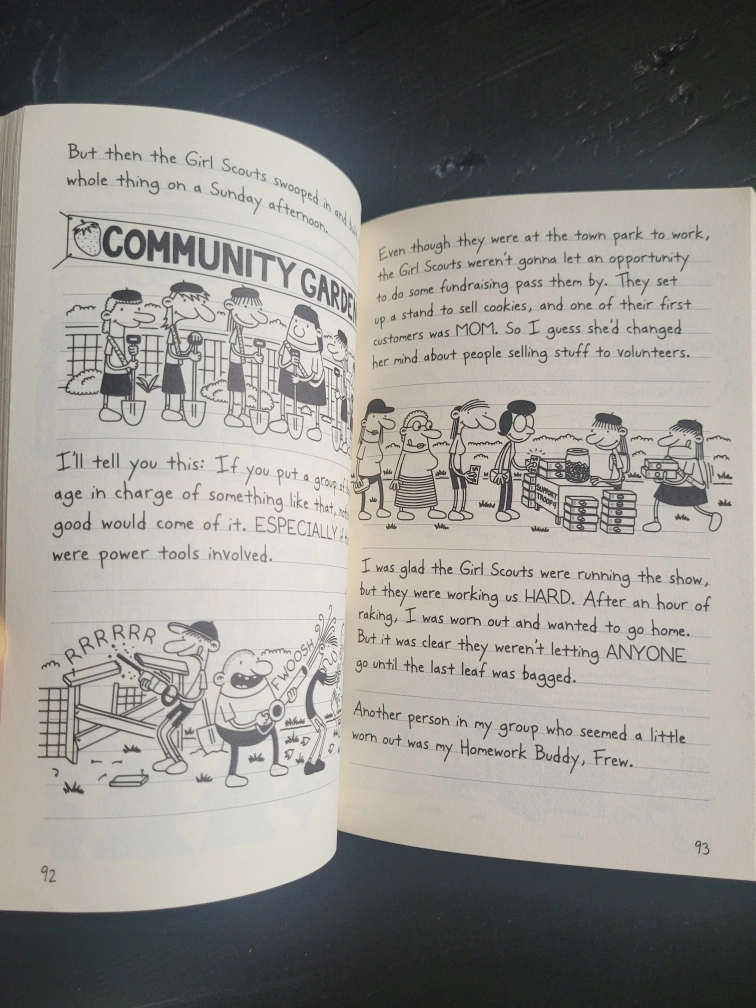 But then the Girl Scouts swooped in and
whole thing on a Sunday afternoon.
COMMUNITY GARDEN
I'll tell you this: If you put a group of
age in charge of something like that,
good would come of it. ESPECIALLY
were power tools involved.
RRRRRR
FWOOSH
92
Even though they were at the town park to work,
the Girl Scouts weren't gonna let an opportunity
to do some fundraising pass them by. They set
up a stand to sell cookies, and one of their first
customers was MOM. So I guess she'd changed
her mind about people selling stuff to volunteers.
SUPPORT
TROOP
I was glad the Girl Scouts were running the show,
but they were working us HARD. After an hour of
raking, I was worn out and wanted to go home.
But it was clear they weren't letting ANYONE
go until the last leaf was bagged.
Another person in my group who seemed a little
worn out was my Homework Buddy, Frew.
93